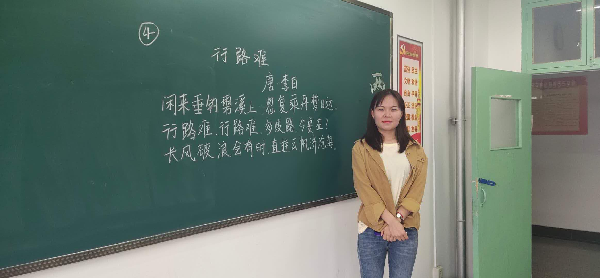 ④
行路难
唐 李白
闲来垂钓碧溪上 忽复乘舟梦日边
行路难,行路难,多歧路,今安在?
长风破浪会有时,直挂云帆济沧海
两